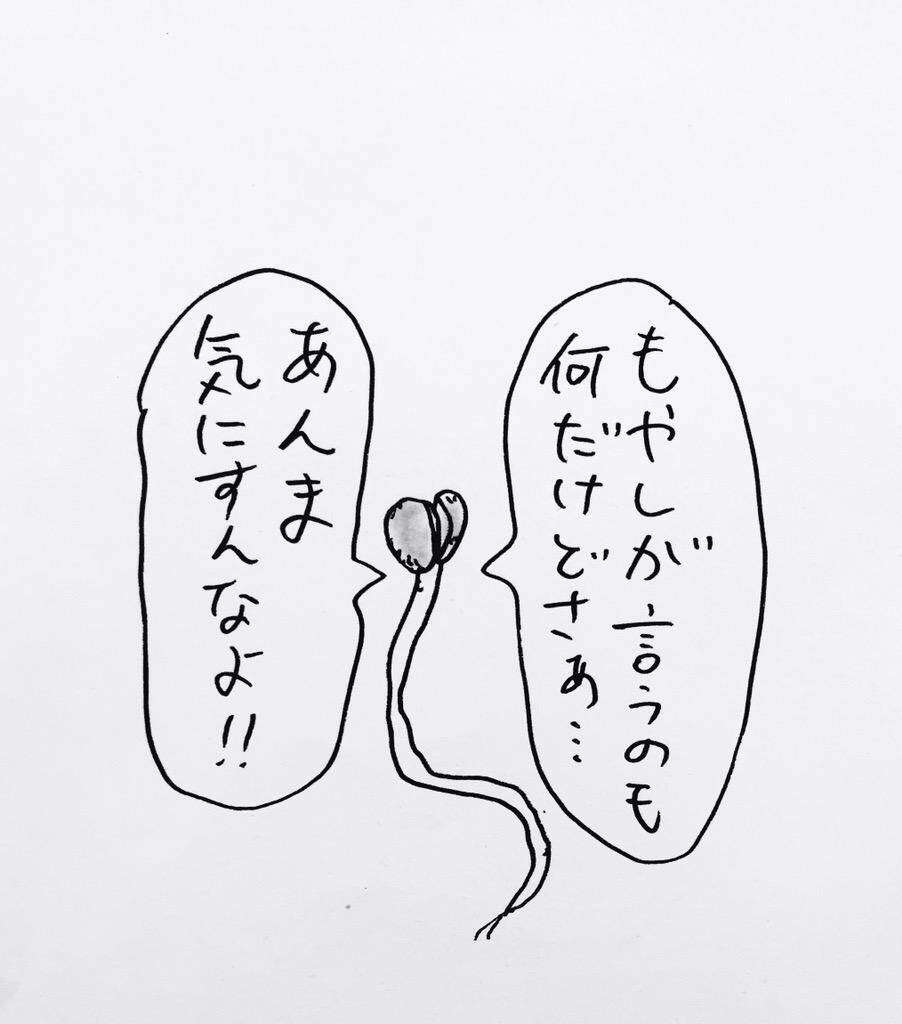 もやしが言うのも
何だけどさぁ…
あんま
気にすんなよ!!